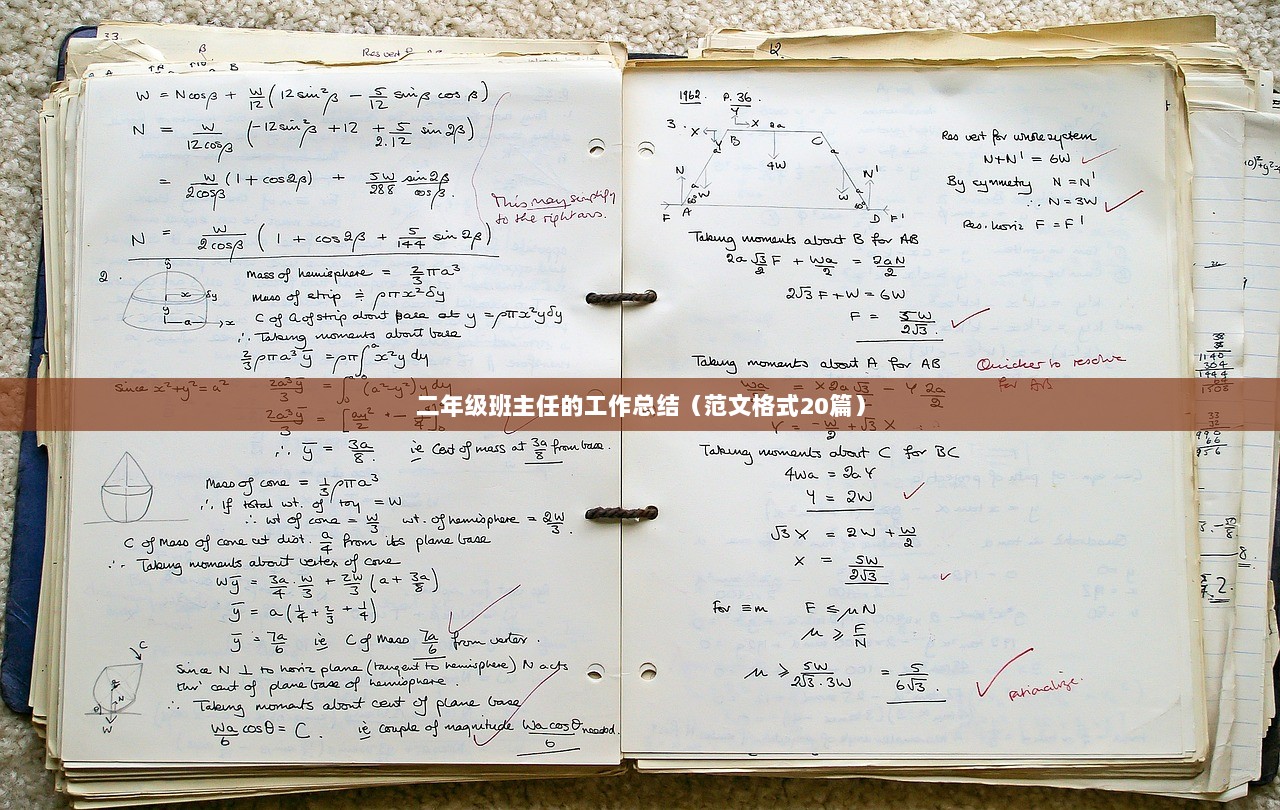 33.
W = Ncosβ + W/12 (12 sin²β − 5/12 sinβ cosβ)
N = W/12cosβ (−12 sin²β + 12 + 5/2.12 sin 2β)
= W/2cosβ (1 + cos2β) + 5W/288 sin2β/cosβ.
This may simplify
to the right ans.
N = W/2cosβ (1 + cos2β + 5/144 sin 2β)
2.
Mass of hemisphere = 2/3 πa³
Mass of strip ≑ ρπx²δy
C of G of strip about base at y = ρπx²yδy
∴ Taking moments about base
2/3 ρπa³ȳ = ρπ∫ₒᵃ x²y dy
since x²+y²=a² 2a³ȳ/3 = ∫ₒᵃ (a²−y²)y dy
二年级班主任的工作总结（范文格式20篇）
∴ ȳ = 3a/8 ie Cent of mass at 3a/8 from base.
Mass of cone = 1/3 ρπa³
∴ If total wt. of toy = W
∴ wt of cone = W/3 wt. of hemisphere = 2W/3.
C of Mass of cone at dist. a/4 from its plane base
∴ Taking moments about vertex of cone
Wȳ = 3a/4 . W/3 + 2W/3 (a + 3a/8)
ȳ = a(1/4 + 2/3 + 1/4)
ȳ = 7a/6 ie C of Mass 7a/6 from vertex.
Since N ⊥ to horiz plane (tangent to hemisphere) N acts
thro' cent of plane base of hemisphere.
∴ Taking moments about cent of plane base
Wa/6 cosθ = C. ie couple of magnitude Wa cosθ/6 needed.
1962. P. 36.
3.
Res vert for whole system
N+N' = 6W
By symmetry N = N'
∴ N = 3W
Res. horiz F = F'
Taking moments about B for AB
2a √3/2 F + Wa/2 = 2aN/2
2√3 F + W = 6W
F = 5W/2√3.
Taking moments about A for AB
Quicker to resolve
for AB
Wa/2 = X2a√3/2 − Y 2a/2
Y = −W/2 + √3 X
Taking moments about C for BC
4Wa = 2aY
Y = 2W
√3 X = 2W + W/2
X = 5W/2√3
For ≡m F ≤ μN
μ ≥ F/N
μ ≥ 5W/2√3 . 3W = 5/6√3.
rationalize.